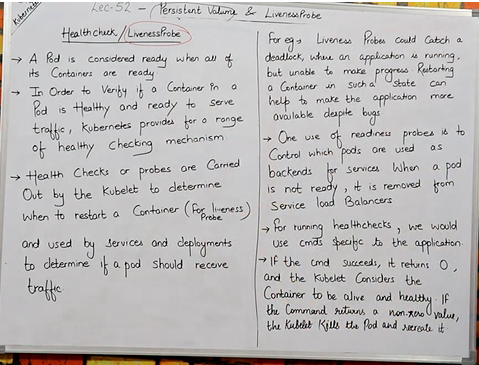 Kubernetes
Lec-52 - Persistent Volume & LivenessProbe
Healthcheck / LivenessProbe
→ A Pod is considered ready when all of
its Containers are ready
→ In Order to Verify if a Container in a
Pod is Healthy and ready to serve
traffic, Kubernetes provides for a range
of healthy checking mechanism
→ Health Checks or probes are Carried
Out by the Kubelet to determine
when to restart a Container (for liveness
Probe)
and used by services and deployments
to determine if a pod should receive
traffic
For eg → Liveness Probes could Catch a
deadlock, where an application is running,
but unable to make progress Restarting
a Container in such a State can
help to make the application more
available despite bugs
→ One use of readiness probes is to
Control which pods are used as
backends for services When a pod
is not ready, it is removed from
Service load Balancers
→ For running healthchecks, we would
use cmds specific to the application.
→ If the cmd succeeds, it returns 0,
and the Kubelet Considers the
Container to be alive and healthy. If
the Command returns a non-zero value,
the Kubelet Kills the Pod and recreate it.